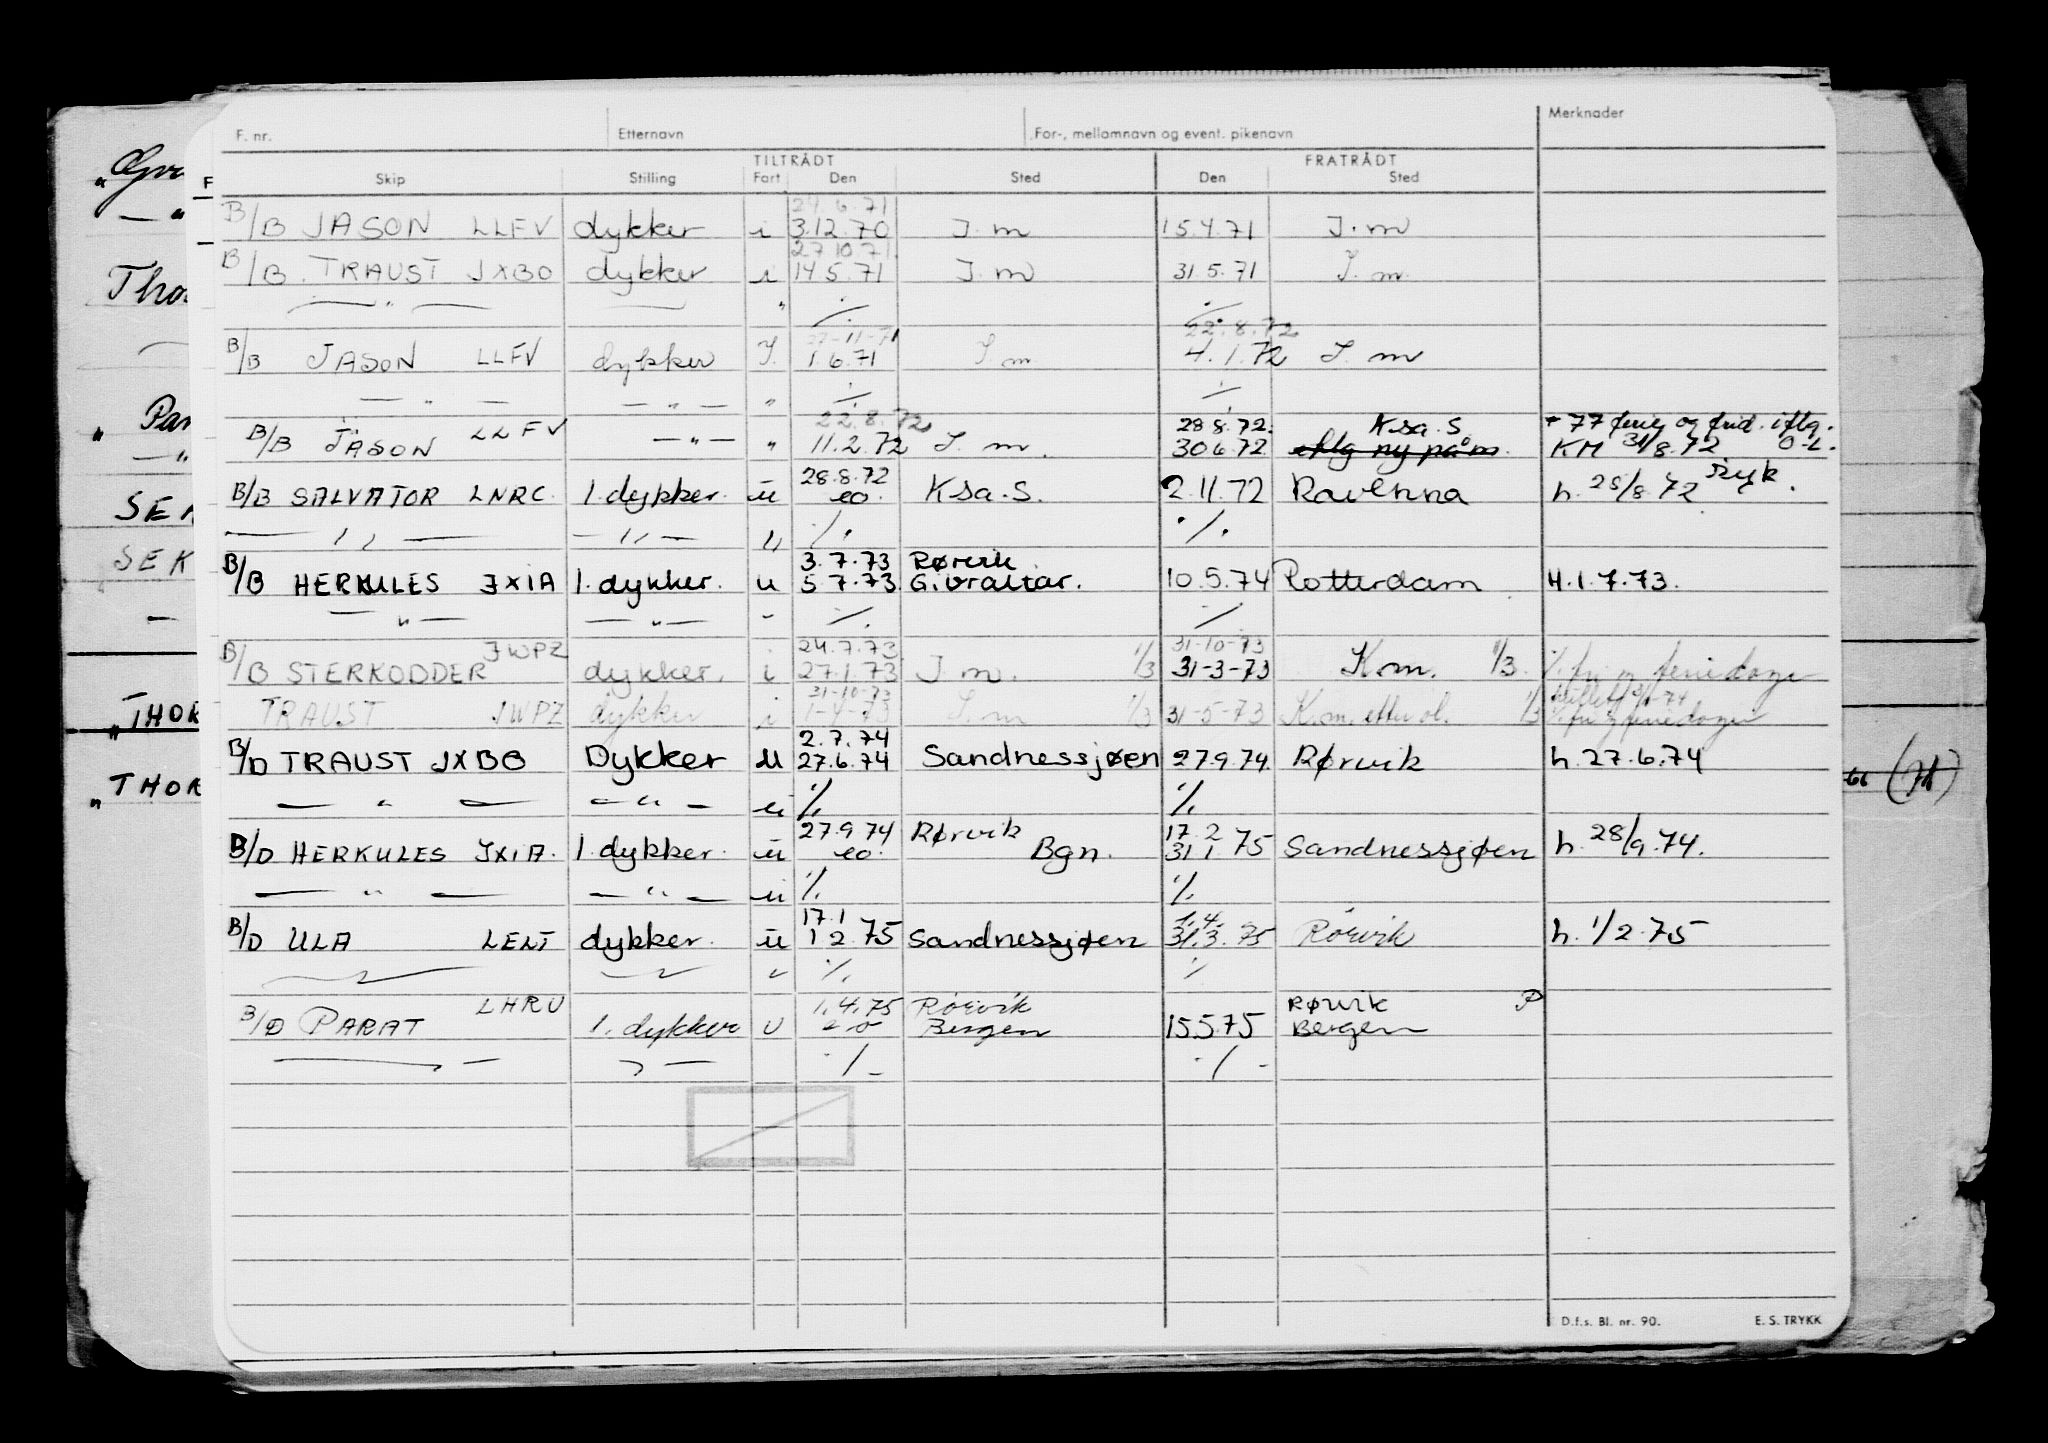 F. nr. Etternavn For-, mellomnavn og event. pikenavn Merknader
TILTRÅDT FRATRÅDT
Skip Stilling Fart Den Sted Den Sted
24.6.71
B/B JASON LLFV dykker i 3.12.70 I.m 15.4.71 I.m
27.10.71
B/B. TRAUST JXBO dykker i 14.5.71 I.m 31.5.71 I.m.
— " — — " ./. ./.
27-11-71 22.8.72
B/B JASON LLFV dykker I. 1.6.71 I m 4.1.72 I. m
— " — — " — " ./. ./.
22.8.72 28.8.72. Ksa.S + 77 ferie og frid. iflg.
B/B JASON LLFV — " — " 11.2.72 I. m. 30.6.72 KM 31/8.72 O-L.
28.8.72
B/B SALVATOR LNRC. 1. dykker. u eo. Ksa.S. 2.11.72 Ravenna h. 28/8.72
— " — — " — " ./. ./.
3.7.73 Rørvik
B/B HERKULES JXIA 1. dykker. u 5.7.73. Gibraltar. 10.5.74 Rotterdam H.1.7.73.
— " — — " — " ./. ./.
JWPZ 24.7.73 31-10-73
B/B STERKODDER dykker. i 27.1.73 I.m. 1/3 31-3-73 K.m. 1/3. feriedager
31-10-73
TRAUST JWPZ dykker i 1-4-73 I.m 1/3 31-5-73 K.m. etter ol. 1/3 feriedager
2.7.74
B/D TRAUST JXBO Dykker u 27.6.74 Sandnessjøen 27.9.74. Rørvik h. 27.6.74
— " — — " — u ./. ./.
27.9.74 Rørvik 17.2
B/D HERKULES JXIA. 1. dykker. u eo. Bgn. 31.1.75 Sandnessjøen h. 28/9.74.
— " — — " — u ./. ./.
17.1 1.4.
B/D ULA LELT dykker. u 1.2.75 Sandnessjøen 31.3.75 Rørvik h. 1/2.75
— " — — " — " ./. ./.
LHRU 1.4.75 Rørvik Rørvik P
B/D PARAT 1. dykker u eo Bergen 15.5.75 Bergen
— " — — " — ./. ./.
D.f.s. Bl. nr. 90. E. S. TRYKK
Thor
SEK
"THOR
"THOR